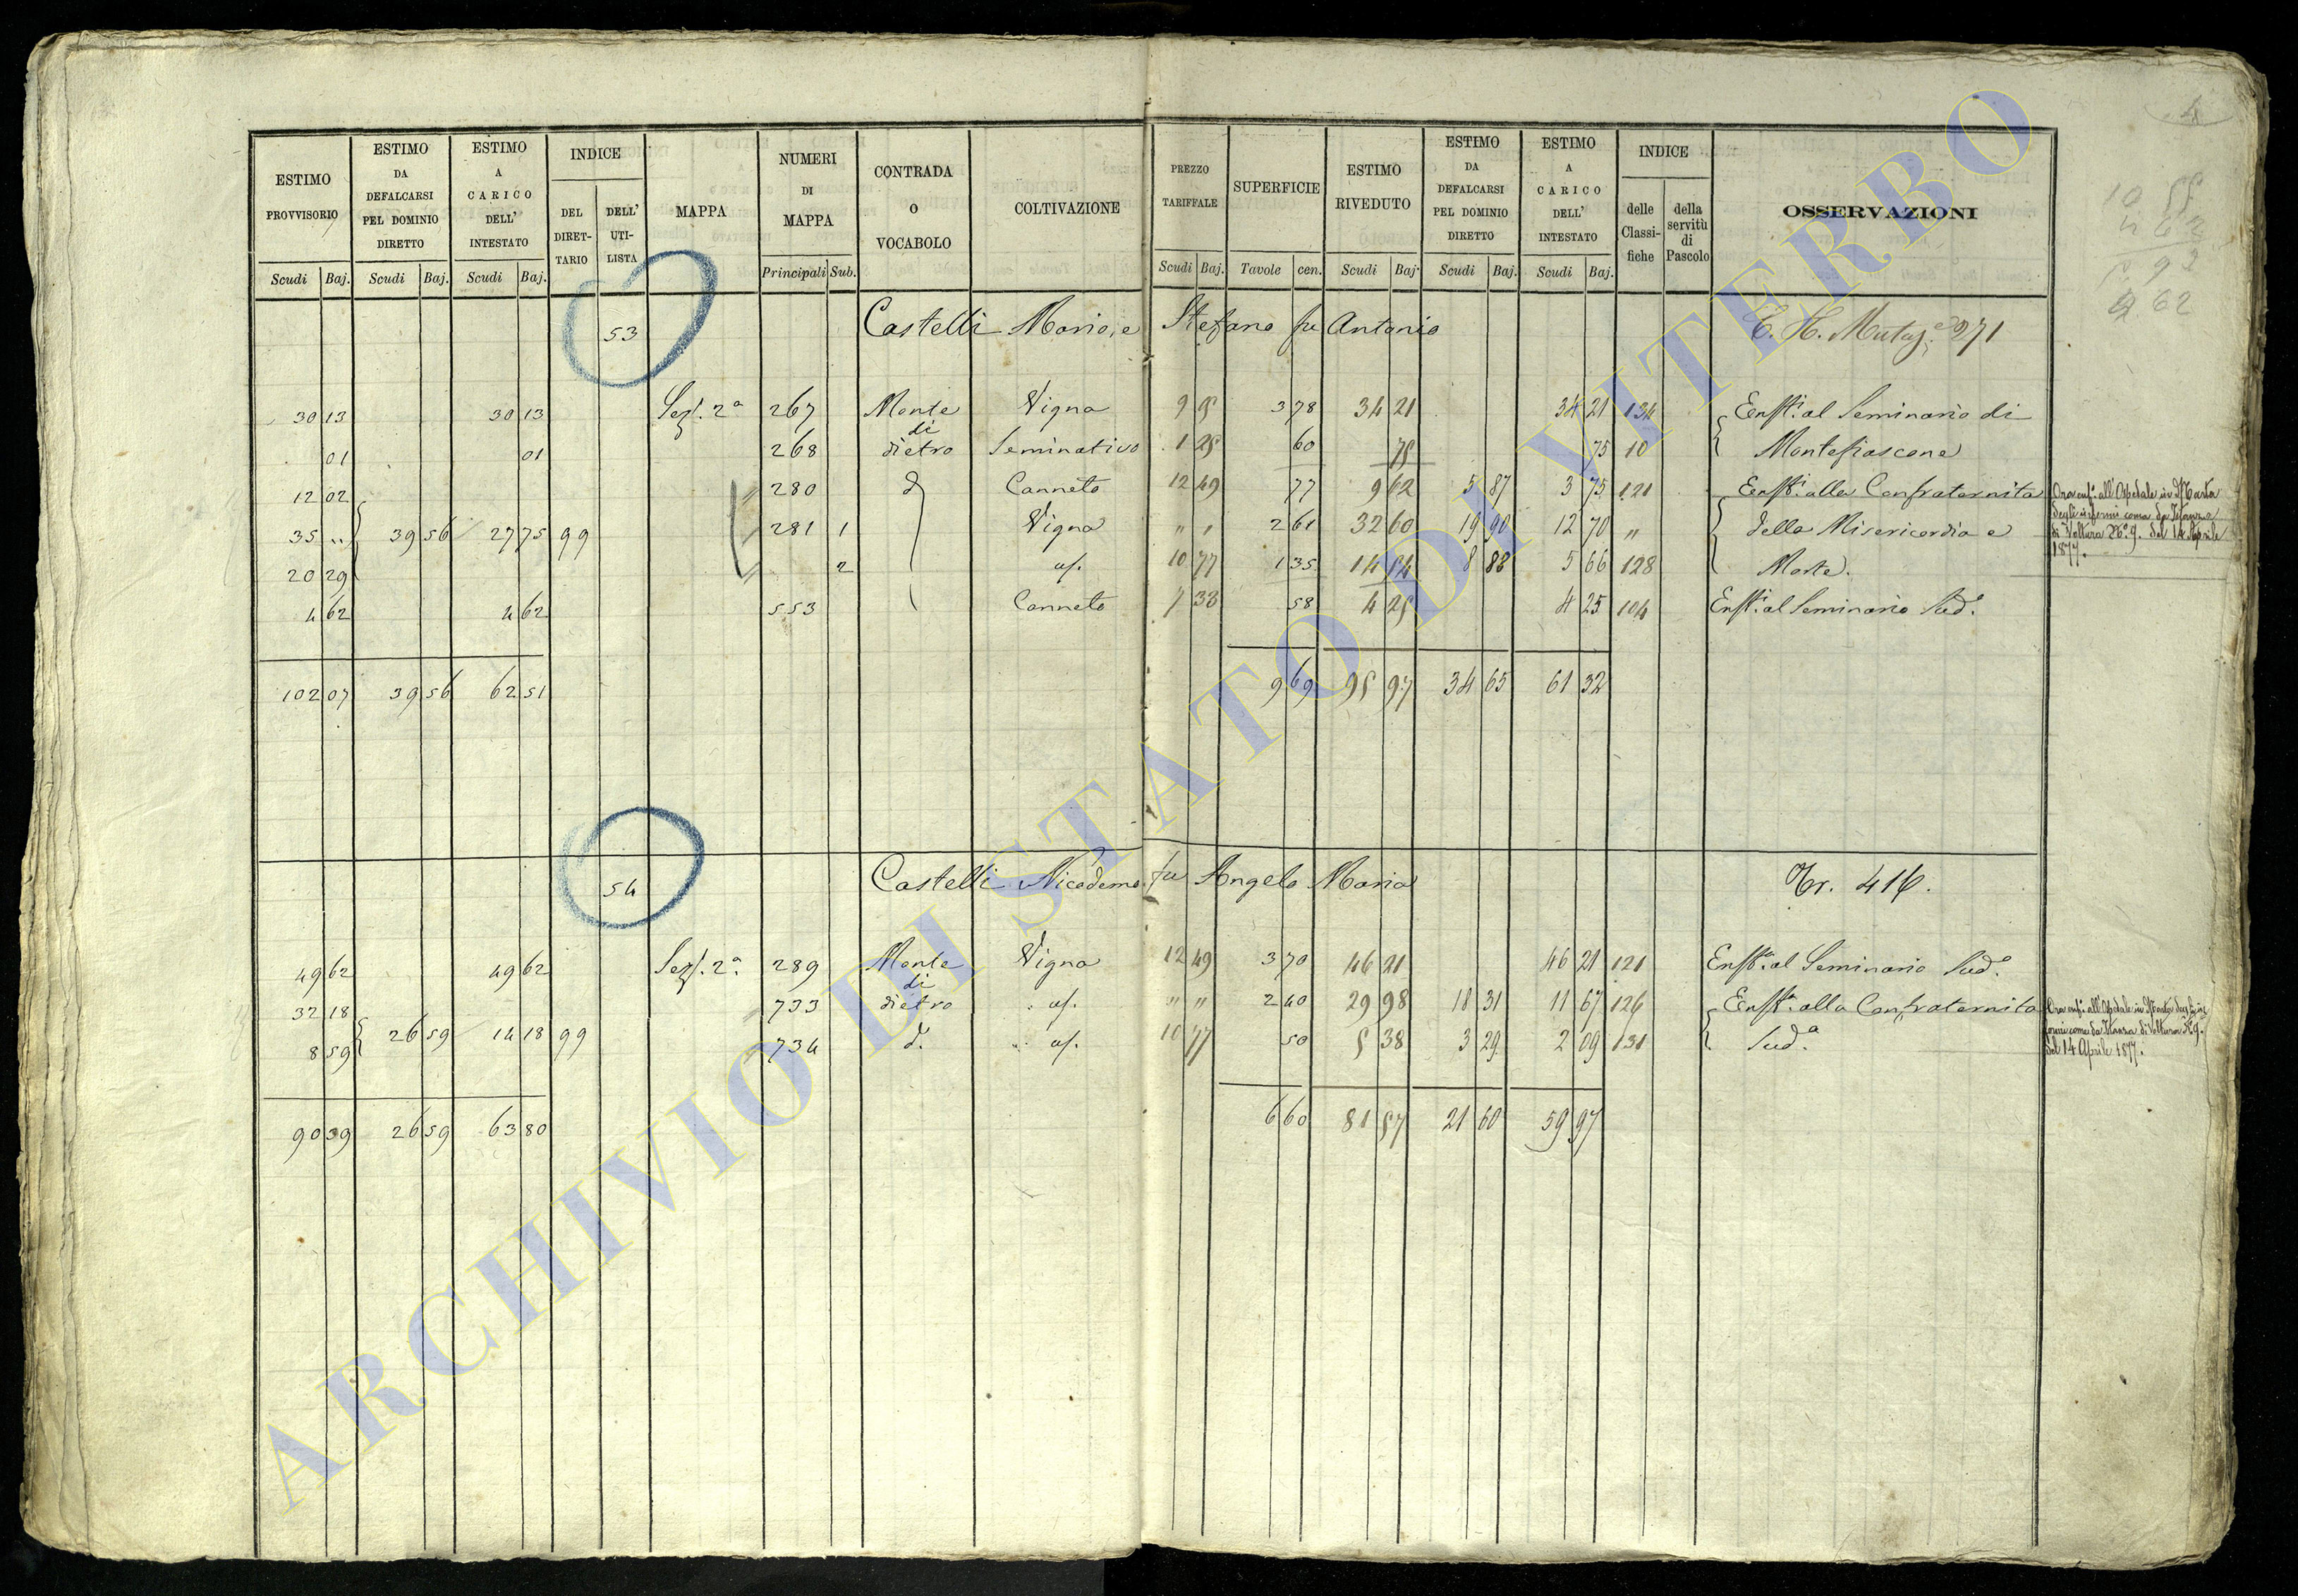 ESTIMO PROVVISORIO | ESTIMO DA DEFALCARSI PEL DOMINIO DIRETTO | ESTIMO A CARICO DELL' INTESTATO | INDICE | MAPPA | NUMERI DI MAPPA | CONTRADA O VOCABOLO | COLTIVAZIONE | PREZZO TARIFFALE | SUPERFICIE | ESTIMO RIVEDUTO | ESTIMO DA DEFALCARSI PEL DOMINIO DIRETTO | ESTIMO A CARICO DELL' INTESTATO | INDICE | OSSERVAZIONI
DEL DIRETTARIO | DELL' UTILISTA | delle Classifiche | della servitù di Pascolo
Scudi | Baj. | Scudi | Baj. | Scudi | Baj. | Principali | Sub. | Scudi | Baj. | Tavole | cen. | Scudi | Baj. | Scudi | Baj. | Scudi | Baj.
53 Castelli Mario, e Stefano fu Antonio 271
30 13 | 30 13 | Sez. 2a | 267 | Monte | Vigna | 9 05 | 3 78 | 34 21 | 34 21 | 134 | al Seminario di
di
01 | 01 | 268 | dietro | Seminativo | 1 25 | 60 | 75 | 75 | 10 | Montefiascone
12 02 | 280 | d | Canneto | 12 49 | 77 | 9 62 | 5 87 | 3 75 | 121 | alla Confraternita
35 " | 39 56 | 27 75 | 99 | 281 | 1 | Vigna | " " | 2 61 | 32 60 | 19 90 | 12 70 | " | della Misericordia e
20 29 | 2 | 10 77 | 1 35 | 14 54 | 8 88 | 5 66 | 128 | Morte.
4 62 | 4 62 | 553 | Canneto | 7 33 | 58 | 4 25 | 4 25 | 104 | al Seminario Sud.o
102 07 | 39 56 | 62 51 | 9 69 | 95 97 | 34 65 | 61 32
all'Ospedale
degli infermi come da Istanza
di Voltura No. 9. del 14 Aprile
1877.
54 Castelli Nicodemo fu Angelo Maria Tr. 416.
49 62 | 49 62 | Sez. 2a. | 289 | Monte | Vigna | 12 49 | 3 70 | 46 21 | 46 21 | 121 | al Seminario Sud.o
di
32 18 | 733 | dietro | " " | 2 40 | 29 98 | 18 31 | 11 67 | 126 | alla Confraternita
8 59 | 26 59 | 14 18 | 99 | 734 | d. | 10 77 | 50 | 5 38 | 3 29 | 2 09 | 131 | Sud.a
90 39 | 26 59 | 63 80 | 6 60 | 81 57 | 21 60 | 59 97
all'Ospedale
come da Istanza di Voltura No. 9.
del 14 Aprile 1877.
ARCHIVIO DI STATO DI VITERBO